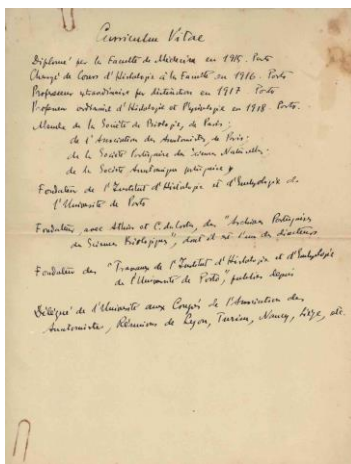 Curriculum Vitae
Diplomé par la Faculté de Médecine en 1915. Porto
Chargé de Cours d'Histologie à la Faculté en 1916. Porto
Professeur extraordinaire par distinction en 1917 Porto
Professeur ordinaire d'Histologie et Physiologie en 1918. Porto.
Membre de la Société de Biologie, de Paris;
de l'Association des Anatomistes, de Paris;
de la Société Portugaise des Sciences Naturelles;
de la Société Anatomique portugaise
Fondateur de l'Institut d'Histologie et d'Embryologie de
l'Université de Porto
Fondateur, avec Athias et C. des "Archives Portugaises
des Sciences Biologiques", dont il est l'un des directeurs
Fondateur des "Travaux de l'Institut d'Histologie et d'Embryologie
de l'Université de Porto", publiés depuis
Délégué de l'Université aux Congrès de l'Association des
Anatomistes, Réunions de Lyon, Turin, Nancy, Liège, etc.